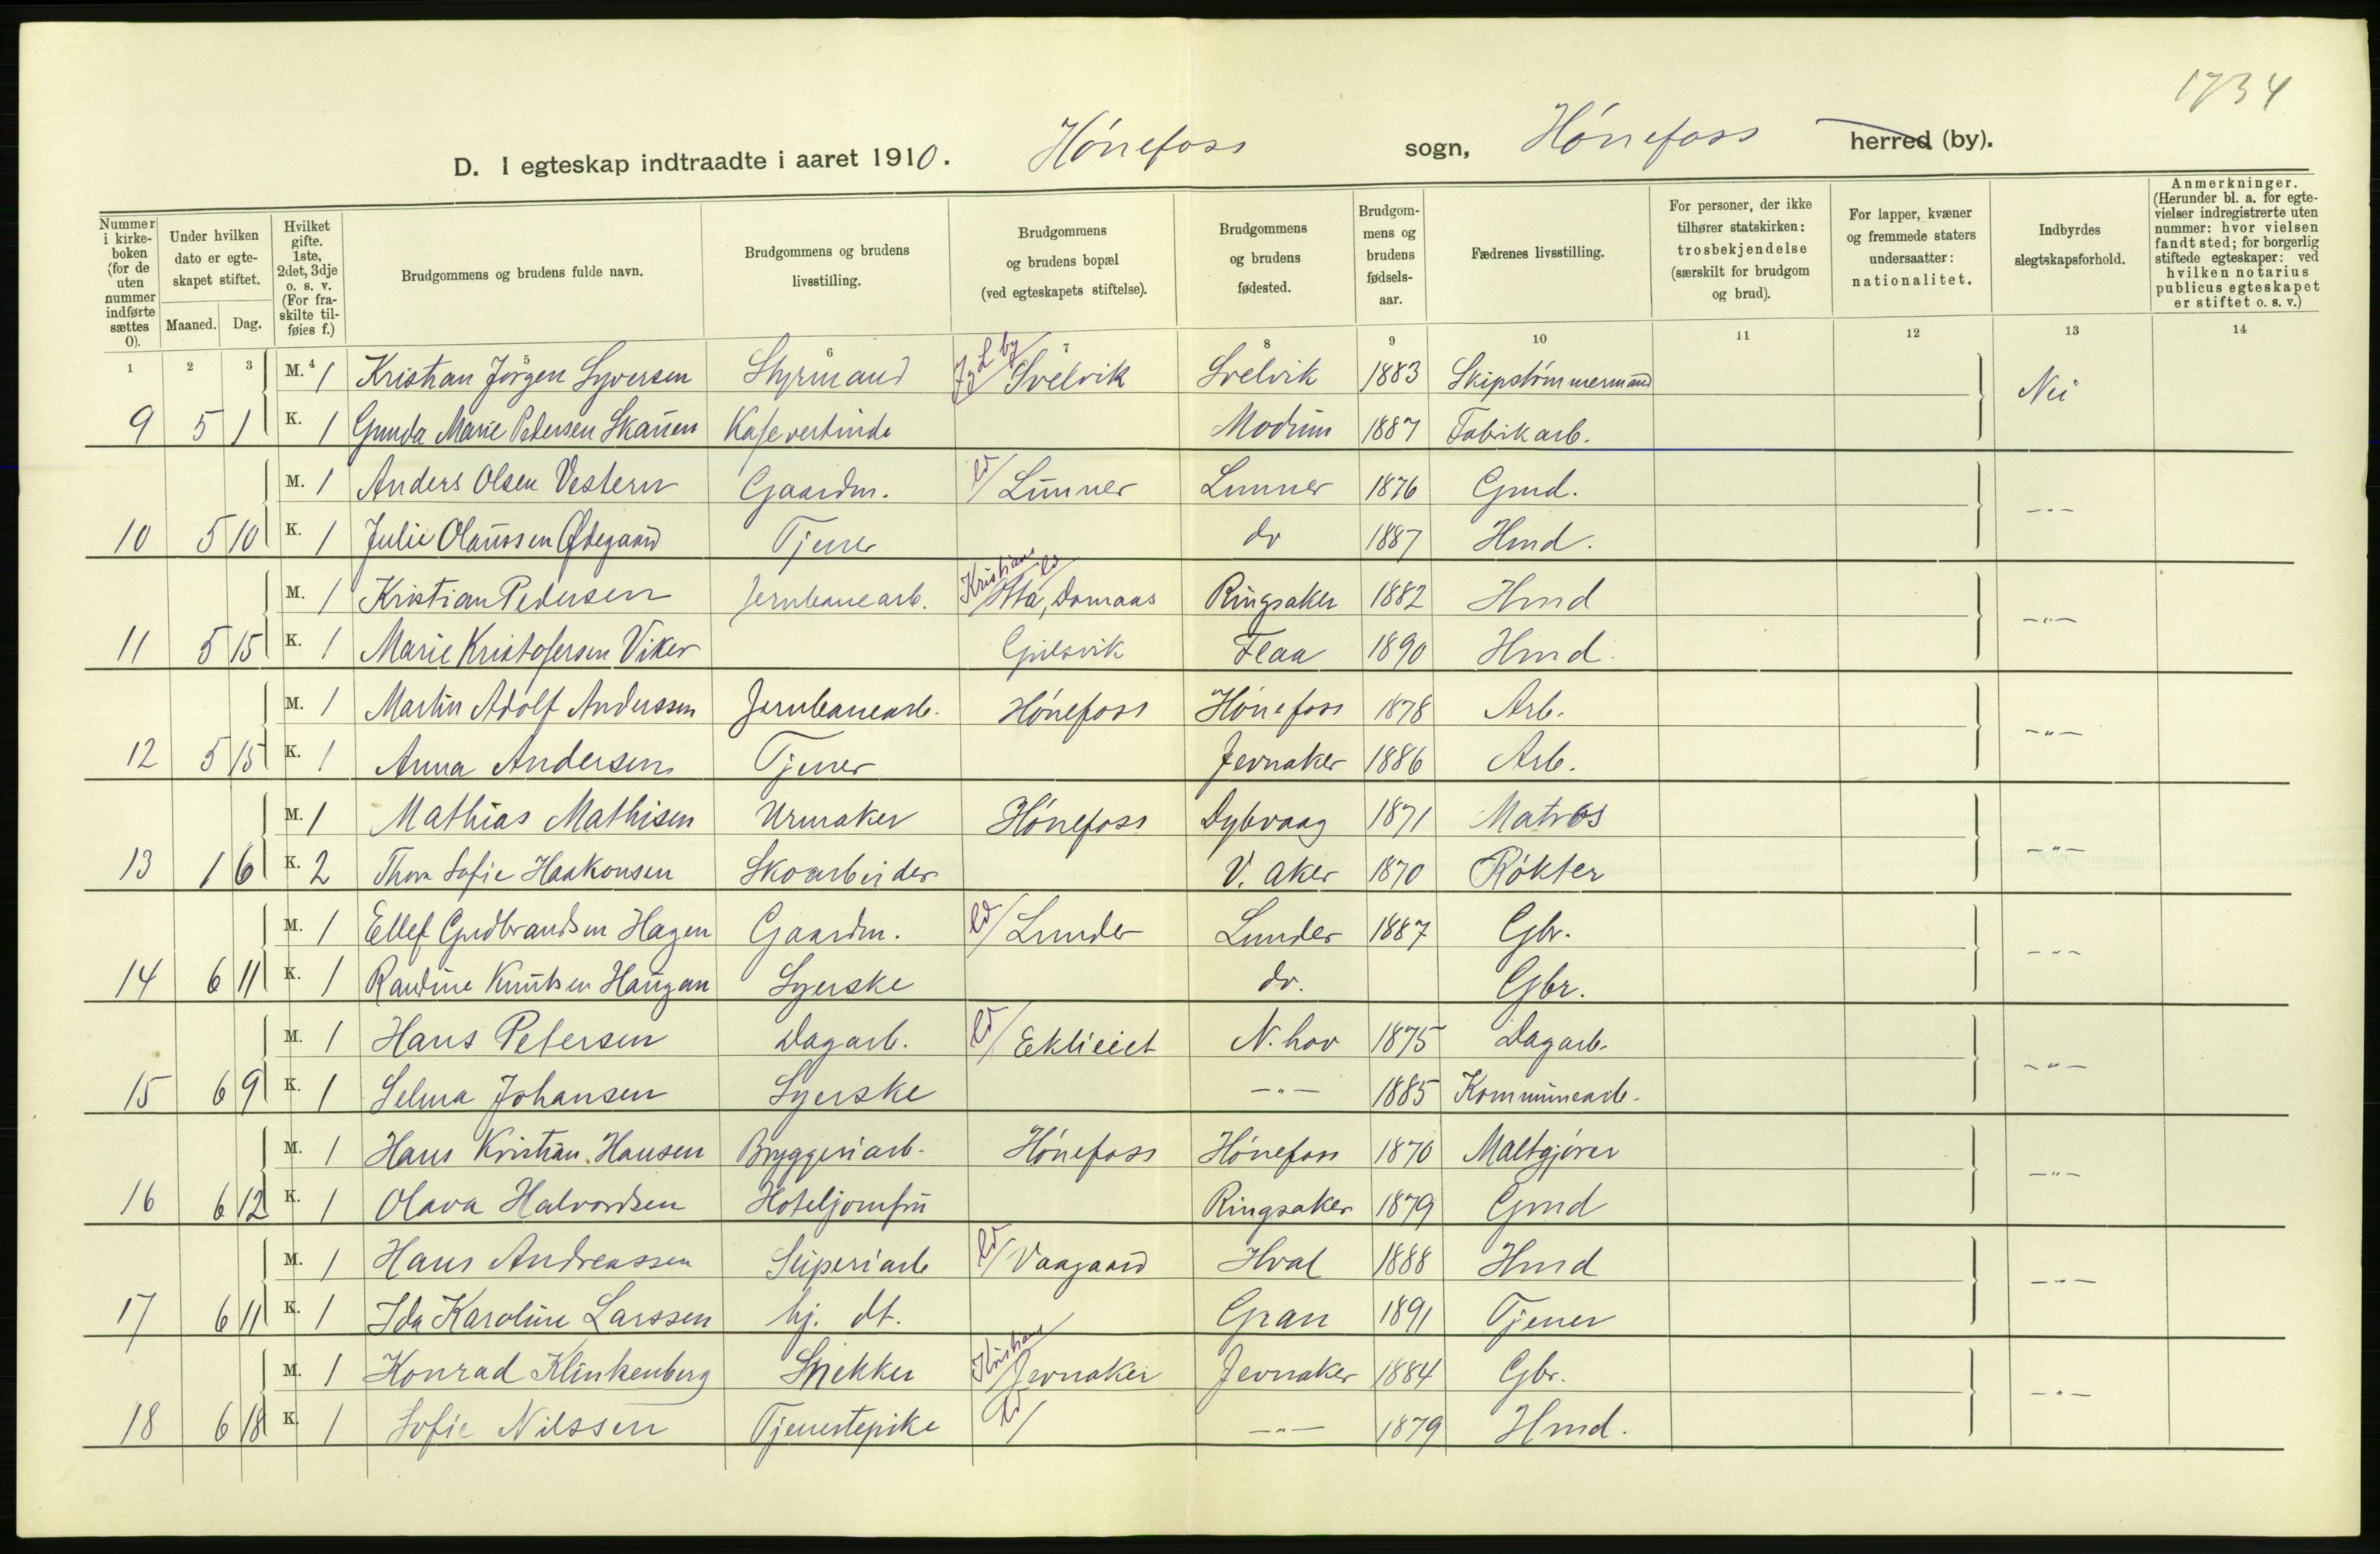 1734
D. I egteskap indtraadte i aaret 1910. Hónefoss sogn, Hónefoss herred (by).
Nummer i kirkeboken (for de uten nummer indførte sættes 0).
Under hvilken dato er egteskapet stiftet.
Maaned. Dag.
Hvilket gifte. 1ste, 2det, 3dje o. s. v. (For fraskilte tilføies f.)
Brudgommens og brudens fulde navn.
Brudgommens og brudens livsstilling.
Brudgommens og brudens bopæl (ved egteskapets stiftelse).
Brudgommens og brudens fødested.
Brudgommens og brudens fødselsaar.
Fædrenes livsstilling.
For personer, der ikke tilhører statskirken: trosbekjendelse (særskilt for brudgom og brud).
For lapper, kvæner og fremmede staters undersaatter: nationalitet.
Indbyrdes slegtskapsforhold.
Anmerkninger. (Herunder bl. a. for egtevielser indregistrerte uten nummer: hvor vielsen fandt sted; for borgerlig stiftede egteskaper: ved hvilken notarius publicus egteskapet er stiftet o. s. v.)
1 2 3 4 5 6 7 8 9 10 11 12 13 14
M. 1 Kristian Jörgen Syversen Styrmand Svelvik Svelvik 1883 Skipstómmermand Nei
9 5 1 K. 1 Gunda Marie Pedersen Skauen Kafevertinde Modum 1887 Fabrikarb.
M. 1 Anders Olsen Vestern Gaardm. ld/ Lunner Lunner 1876 Gmd. -"-
10 5 10 K. 1 Julie Olaussen Ødegaard Tjener do 1887 Hmd.
M. 1 Kristian Pedersen Jernbanearb. Kristians ld Otta, Domaas Ringsaker 1882 Hmd -"-
11 5 15 K. 1 Marie Kristofersen Viker Gulsvik Flaa 1890 Hmd.
M. 1 Martin Adolf Anderssen Jernbanearb. Hónefoss Hónefoss 1878 Arb. -"-
12 5 15 K. 1 Anna Andersen Tjener Jevnaker 1886 Arb.
M. 1 Mathias Mathisen Urmaker Hónefoss Dybvaag 1871 Matros -"-
13 1 6 K. 2 Thora Sofie Haakonsen Skoarbeider V. Aker 1870 Rókter
M. 1 Ellef Gudbrandsen Hagen Gaardm. ld/ Lunder Lunder 1887 Gbr. -"-
14 6 11 K. 1 Randine Knutsen Haugan Syerske do. Gbr.
M. 1 Hans Petersen Dagarb. ld/ N. hov 1875 Dagarb. -"-
15 6 9 K. 1 Selma Johansen Syerske -"- 1885 Kommunearb.
M. 1 Hans Kristian Hansen Bryggeriarb. Hónefoss Hónefoss 1870 Maltgjórer -"-
16 6 12 K. 1 Olava Halvordsen Hoteljomfru Ringsaker 1879 Gmd
M. 1 Hans Andreassen Sliperiarb ld/ Vaagaard Hval 1888 Hmd -"-
17 6 11 K. 1 Ida Karoline Larssen hj. dt. Gran 1891 Tjener
M. 1 Konrad Klinkenberg Snekker Kristians Jevnaker Jevnaker 1884 Gbr. -"-
18 6 18 K. 1 Sofie Nilssen Tjenestepike ld/ -"- 1879 Hmd.